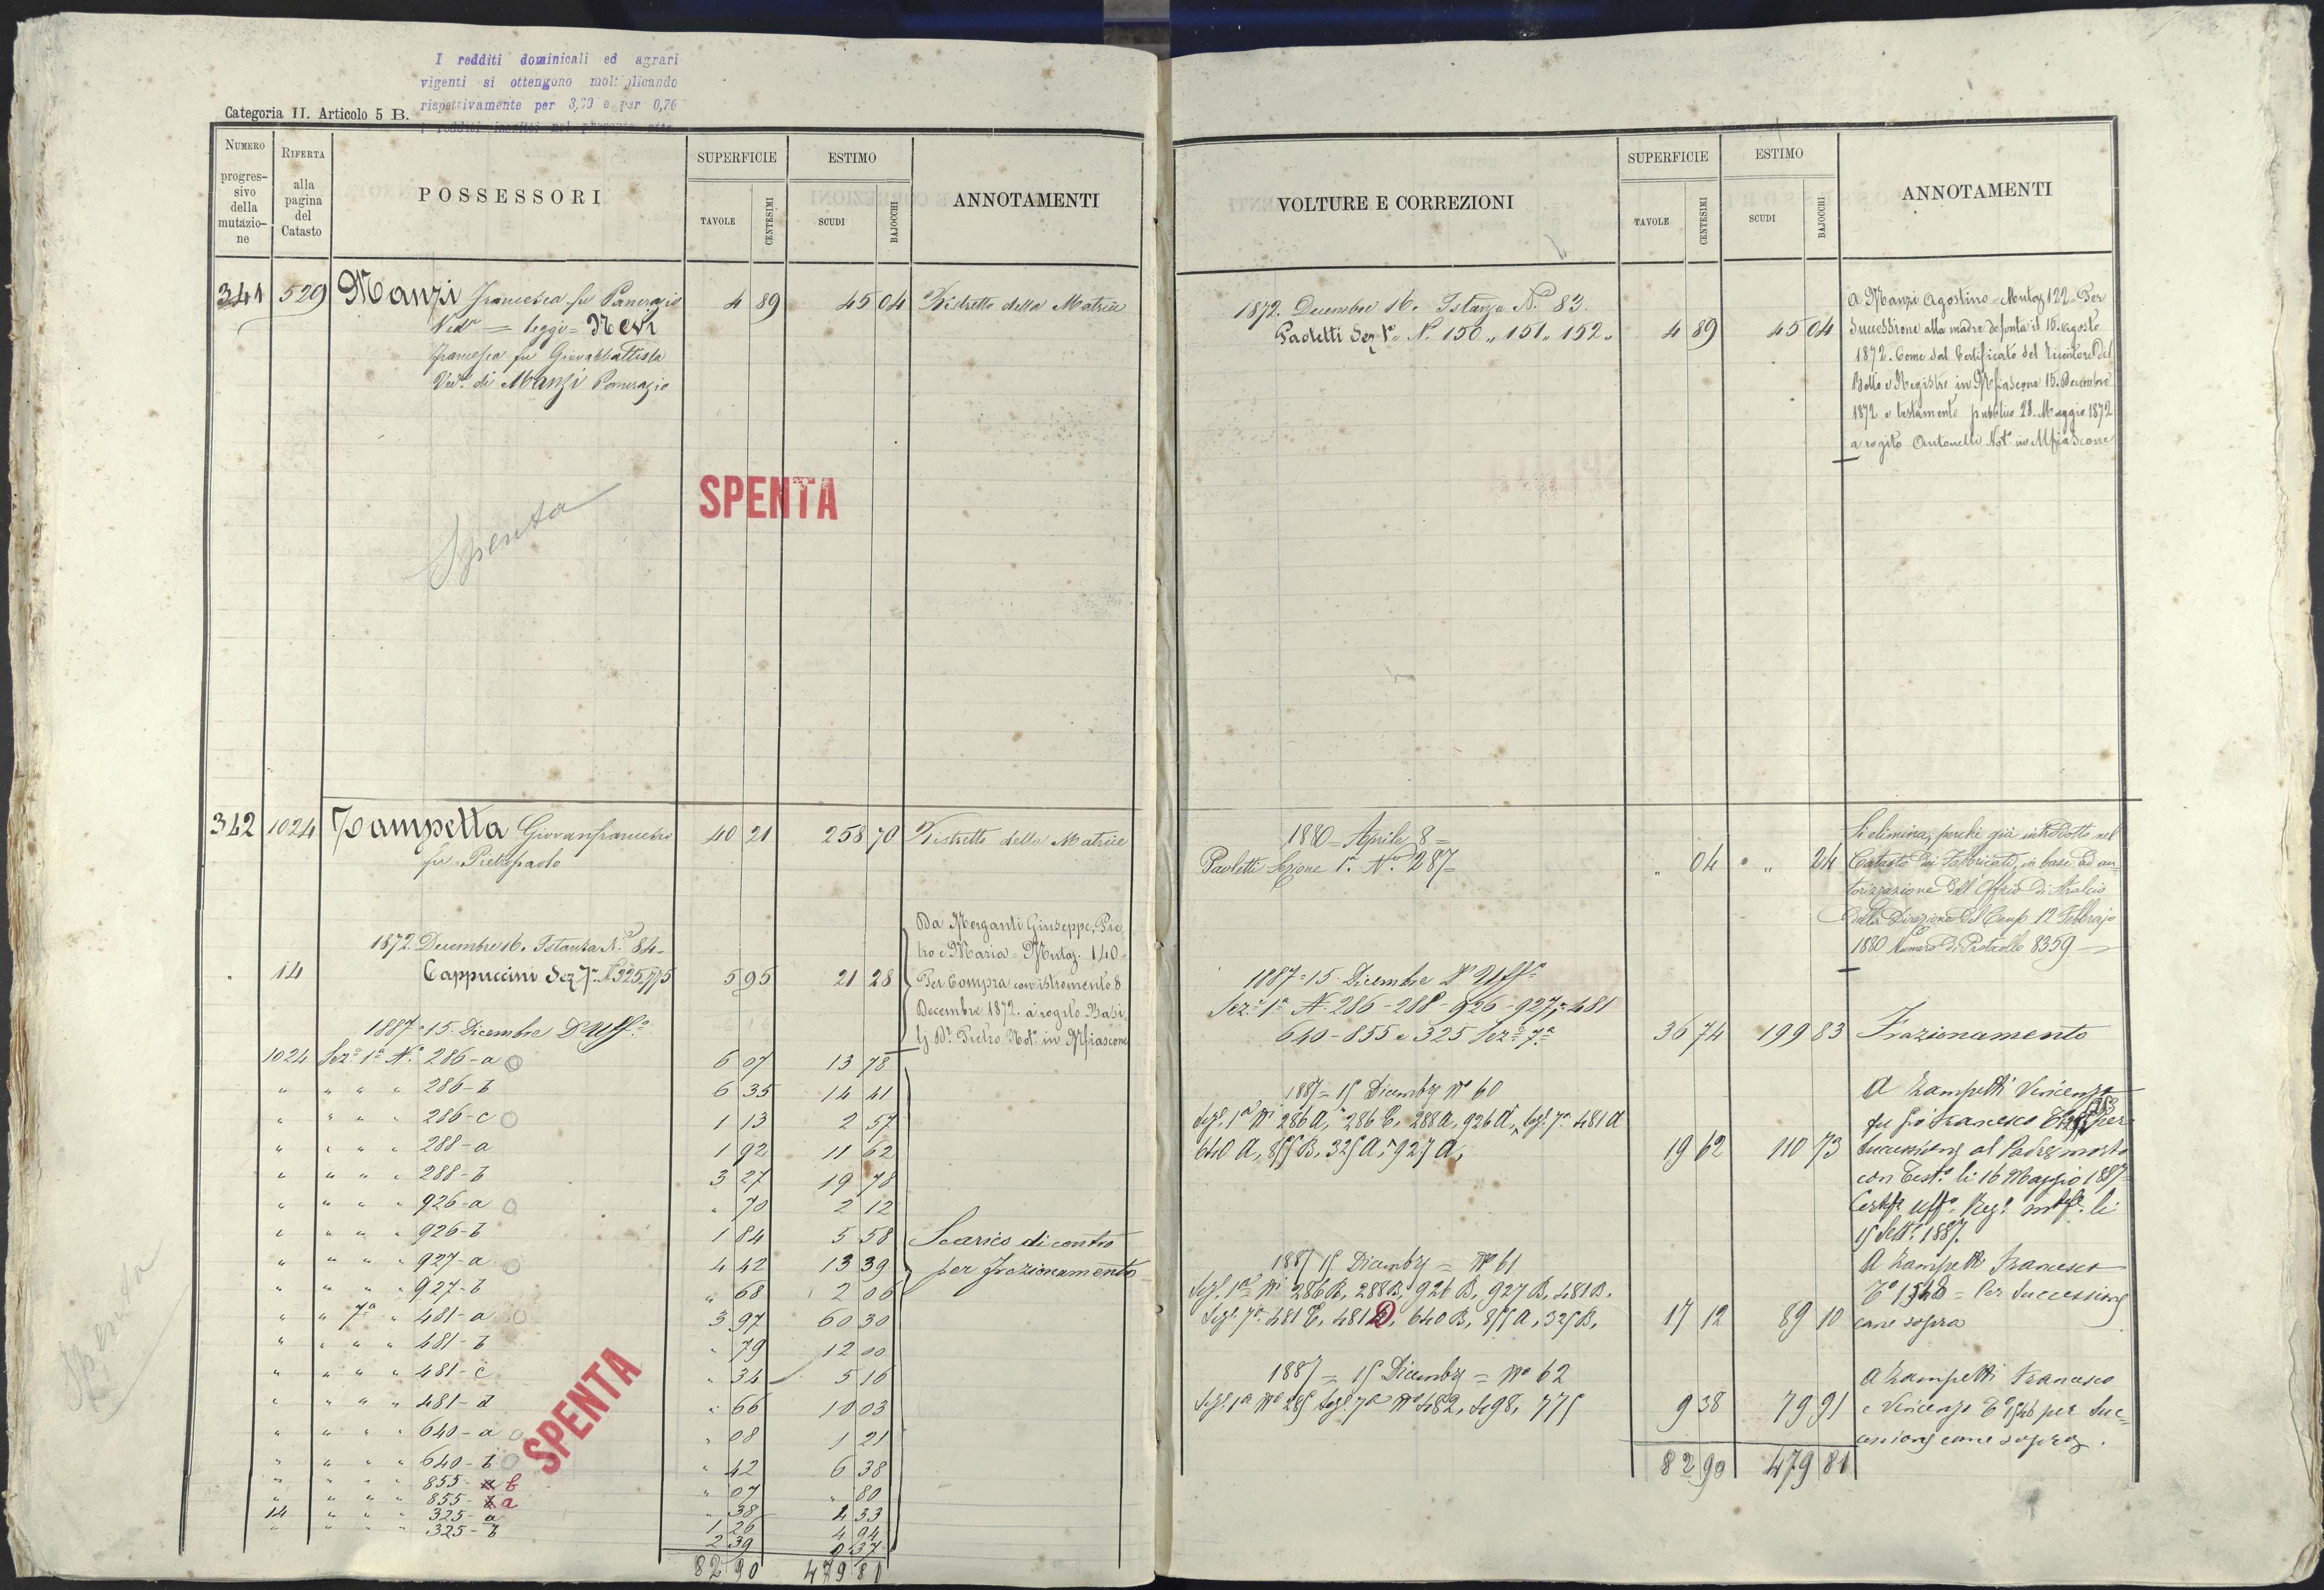 I redditi dominicali ed agrari
vigenti si ottengono moltiplicando
rispettivamente per e per 0,76
Categoria II. Articolo 5 B.
NUMERO progressivo della mutazione
RIFERTA alla pagina del Catasto
POSSESSORI
SUPERFICIE
TAVOLE
CENTESIMI
ESTIMO
SCUDI
BAJOCCHI
ANNOTAMENTI
341 529 Manzi Francesca fu Pancrazio 4 89 45 04 Ristretto della Matrice
Ved.ª = leggi = Nevi
Francesca fu Giovabbattista
Ved.ª di Manzi Pancrazio
SPENTA
Spenta
342 1024 Zampetta Gio[vanfrancesco] 40 21 258 70 Ristretto della Matrice
fu Pietropaolo
1872. Decembre 16. Istanza N.º 84.
14 Cappuccini Sez. 7ª N. 325.775 5 95 21 28
Da Morganti Giuseppe, Pie
tro e Maria = Mutaz. 140 =
Per Compra con istromento 8
Decembre 1872. a rogito Basi
lj Dr. Pietro Not.º in Mfiascone
1887 = 15. Dicembre D'Uff.º
1024 Sez.e 1ª N.º 286-a 6 07 13 78
" " " " 286-b 6 35 14 41
" " " " 286-c 1 13 2 57
" " " " 288-a 1 92 11 62
" " " " 288-b 3 27 19 78
" " " " 926-a " 70 2 12
" " " " 926-b 1 84 5 58
" " " " 927-a 4 42 13 39
" " " " 927-b " 68 2 06
" " 7ª " 481-a 3 97 60 30
" " " " 481-b " 79 12 00
" " " " 481-c " 34 5 16
" " " " 481-d " 66 10 03
" " " " 640-a " 08 1 21
" " " " 640-b " 42 6 38
" " " " 855- b " 07 " 80
" " " " 855- a " 38 4 33
14 " " " 325-a 1 26 4 94
" " " " 325-b 2 39 9 37
82 90 479 81
Scarico di contro
per frazionamento
SPENTA
Spenta
VOLTURE E CORREZIONI
SUPERFICIE
TAVOLE
CENTESIMI
ESTIMO
SCUDI
BAJOCCHI
ANNOTAMENTI
1872. Decembre 16. Istanza N.º 83.
Paoletti Sez. 1ª. N. 150 " 151 " 152 " 4 89 45 04
a Manzi Agostino = Mutaz 122 = Per
Successione alla madre defonta il 15. agosto
1872. Come dal Certificato del Ricevitore del
Bollo e Registro in Mfiascone 15. Decembre
1872 e testamento pubblico 28. Maggio 1872
a rogito Antonelli Not.º in Mfiascone
1880 = Aprile 8 =
Paoletti Sezione 1ª. N.º 287= " 04 " 24
Si elimina, perchè già introdotto nel
Catasto dei Fabbricati, in base ad au
torizzazione dell'Officio di Stralcio
della Direzione del Cens 12 Febbrajo
1880 Numero di Protocollo 8359
1887 = 15. Dicembre D'Uff.º
Sez.e 1ª N. 286-288-926-927, 481
640-855 e 325 Sez.e 7ª 36 74 199 83 Frazionamento
1887 = 15 Dicembre Nº 60
Sez. 1ª Ni 286 A, 286 C, 288 A, 926 A, Sez. 7ª 481 A
640 A, 855 B, 325 A, 927 A, 19 62 110 73
A Zampetti Vincenzo
fu Gio Francesco per
Successione al Padre morto
con Test.º li 16 Maggio 1887
Certif Uff.º Reg.º Mfe. li
15 Sett.e 1887.
1887 15 Dicembre = Nº 61
Sez. 1ª Ni 286 B, 288 B, 926 B, 927 B, 481 B.
Sez. 7ª 481 C, 481 D, 640 B, 855 A, 325 B, 17 12 89 10
A Zampetti Francesco
Cº 1548 = Per Successione
come sopra
1887 = 15 Dicembre = Nº 62
Sez. 1ª Nº 285 Sez. 7ª Nº 482, 498, 775 9 38 79 91
A Zampetti Francesco
e Vincenzo Cº 1546 per Suc
cessione come sopra.
82 90 479 81